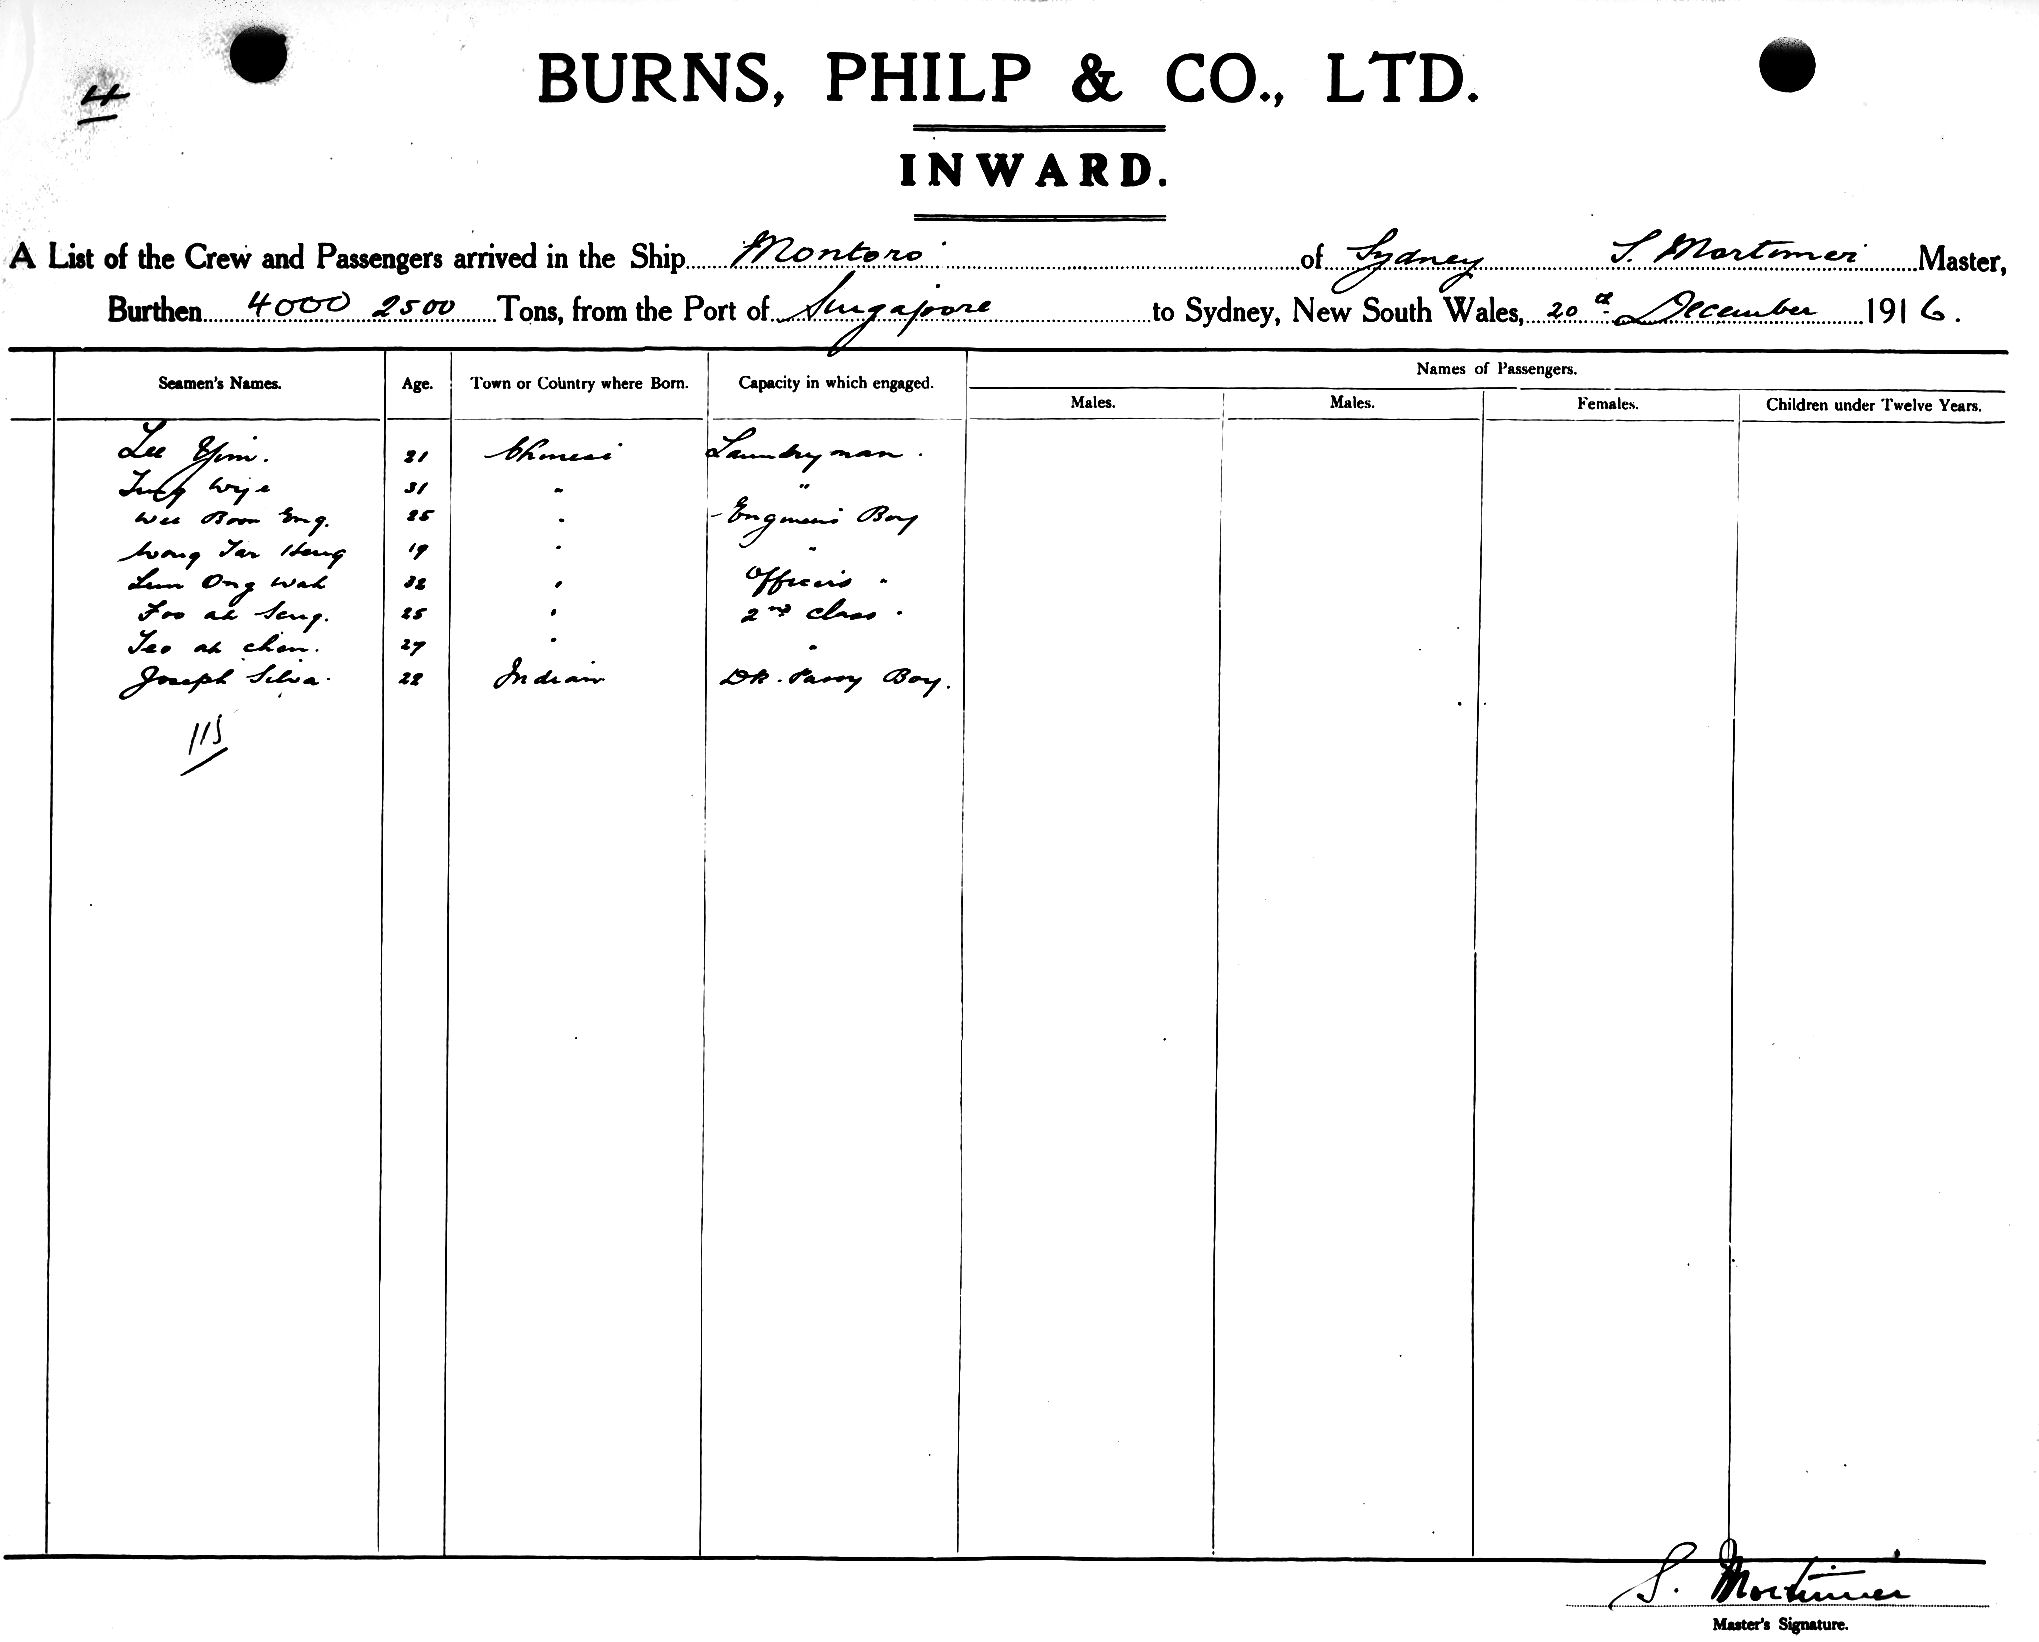 4
BURNS, PHILP & CO., LTD.
INWARD.
A List of the Crew and Passengers arrived in the Ship Montoro of Sydney S. Mortimer Master,
Burthen 4000 2500 Tons, from the Port of Singapore to Sydney, New South Wales, 20th December 1916.
Names of Passengers.
Seamen's Names. Age. Town or Country where Born. Capacity in which engaged.
Males. Males. Females. Children under Twelve Years.
Lee Yim. 21 Chinese Laundryman.
31 " "
Wee Boon Eng. 25 " Engineers Boy
Wong Tar Heng 19 " "
Ong Wah 32 " Officers "
Foo ah Seng. 25 " 2nd Class "
Teo ah chan. 27 " "
Joseph Silva. 22 Indian Boy.
115
S. Mortimer
Master's Signature.